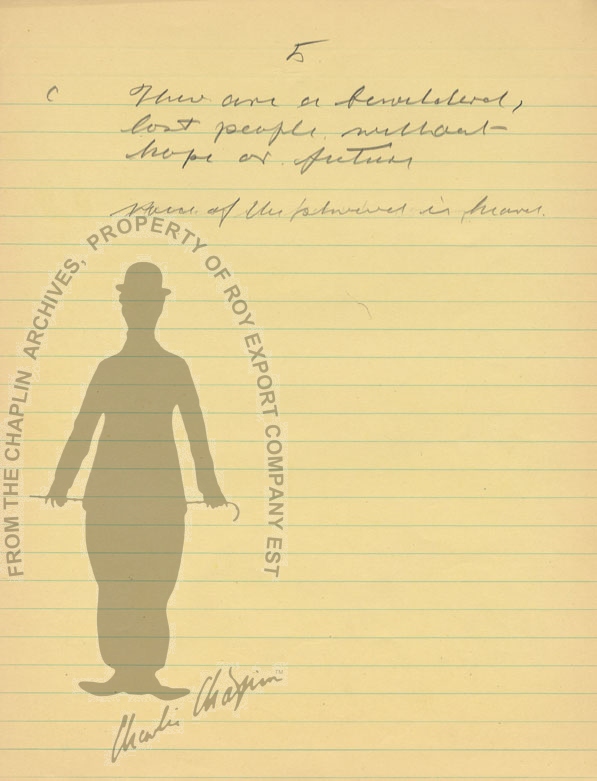 5
( They are a bewildered,
lost people without
hope or future
of the is heard.
FROM THE CHAPLIN ARCHIVES, PROPERTY OF ROY EXPORT COMPANY EST
Charlie Chaplin™